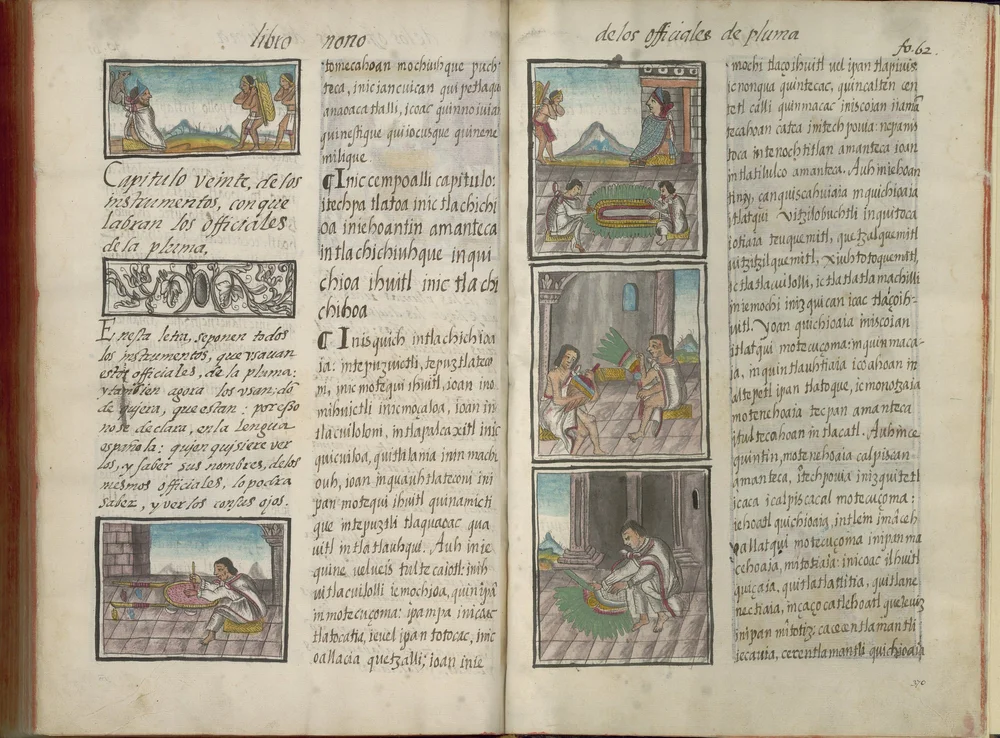 libro nono
Capitulo veinte, de los
instrumentos, con que
labran los officiales
de la pluma.
E nesta letra, se ponen todos
los instrumentos, que vsauan
estos officiales, de la pluma:
y tambien agora los vsan; do
de quiera, que estan: por eso
no se declara, en la lengua
española: quien quisiere ver
los, y saber sus nombres, de los
mesmos officiales, lo podra
saber, y verlos con sus ojos.
tomecahoan mochiuhque puch
teca,
anaoaca tlalli, icoac
milique.
¶ Inic cempoalli capitulo:
itechpa tlatoa inic tlachichi
oa iniehoantin amanteca
in tlachichiuhque in qui
chioa ihuitl inic tlachi
chihoa
¶ Inisquich intlachichioa
ia: intepuzuictli, tepuztlateco
ni, inic motequi ihuitl, ioan ino
mihuictli inic moçaloa, ioan in
tlacuiloloni, in tlapalcaxitl inic
quicuiloa, quitlilania inin mach
ouh, ioan in quauhtlateconi ini
pan motequi ihuitl quinamicti
que intepuztli tlaquaoac qua
uitl in tlatlauhqui. Auh inic
quine velueis tultecaiotl: inih
uitlacuilolli iemochioa, quin ipā
in motecuçoma: ipampa inicac
tlatocatia, ieuel ipan totocac, inic
oallacia quetzalli; ioan inie
de los officiales de pluma
fo. 62.
mochi tlaçoihuitl vel ipan tlapiuix
ienonqua quintecac, quincalten cen
tetl calli quinmacac iniscoian
tecahoan catca intech pouia: nepanis
toca intenochtitlan amanteca ioan
in tlatilulco amanteca. Auh iniehoan
tiny, çan quiscahuiaia in quichioaia
itlatqui Vitzilobuchtli in quitoca
iotiaia teuquemitl, quetzalquemitl
uitzitzilquemitl, xiuhtotoquemitl
ic tlatlacuilolli, ic tlatlatlamachilli
in iemochi iniz quican icac tlaçoih-
uitl. Yoan quichioaia iniscoian
itlatqui motecuçoma: inquinmaca-
ia, in quintlauhtiaia icoahoan in
altepetl ipan tlatoque, ic monotzaia
motenehoaia tecpan amanteca
itultecahoan in tlacatl. Auh in ce
quintin, motenehoaia calpiscan
amanteca, itechpouia inizquitetl
icaca icalpiscacal motecuçoma:
iehoatl quichioaia, intlein
pallatqui motecuçoma inipan ma
cehoaia, mitotiaia: inicoac ilhuitl
quiçaia, quitlatlattitia, quitlane
nectiaia, in caço catlehoatl queleuiz
inipan mitotiz: ca cecentlamantli
iecauia, cecentlamantli quichioaia